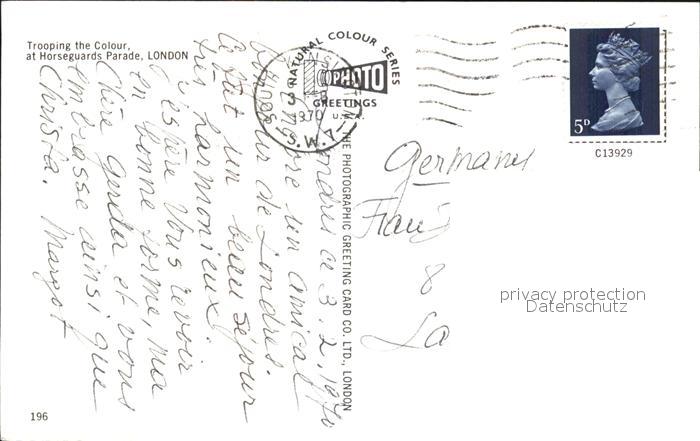 Trooping the Colour,
at Horseguards Parade, LONDON
NATURAL COLOUR SERIES
PHOTO
GREETINGS
U.K.
THE PHOTOGRAPHIC GREETING CARD CO. LTD., LONDON
1970
S.W.7
5D
C13929
Londres le 3.2.1970
Encore un amical
bonjour de Londres.
C'était un beau séjour
très harmonieux.
J'espère vous revoir
en bonne forme, ma
Chère Gerda et vous
embrasse ainsi que
Christa. Margot
Germany
8
La
privacy protection
Datenschutz
196